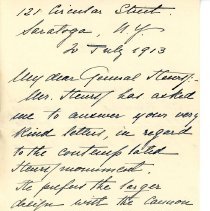 121 Circular Street.
Saratoga, N.Y
2 July 1913
My dear General Henry:-
Mr. Henry has asked
me to answer your very
kind letters, in regard
to the contemplated
Henry monument.
He prefers the larger
design with the cannon